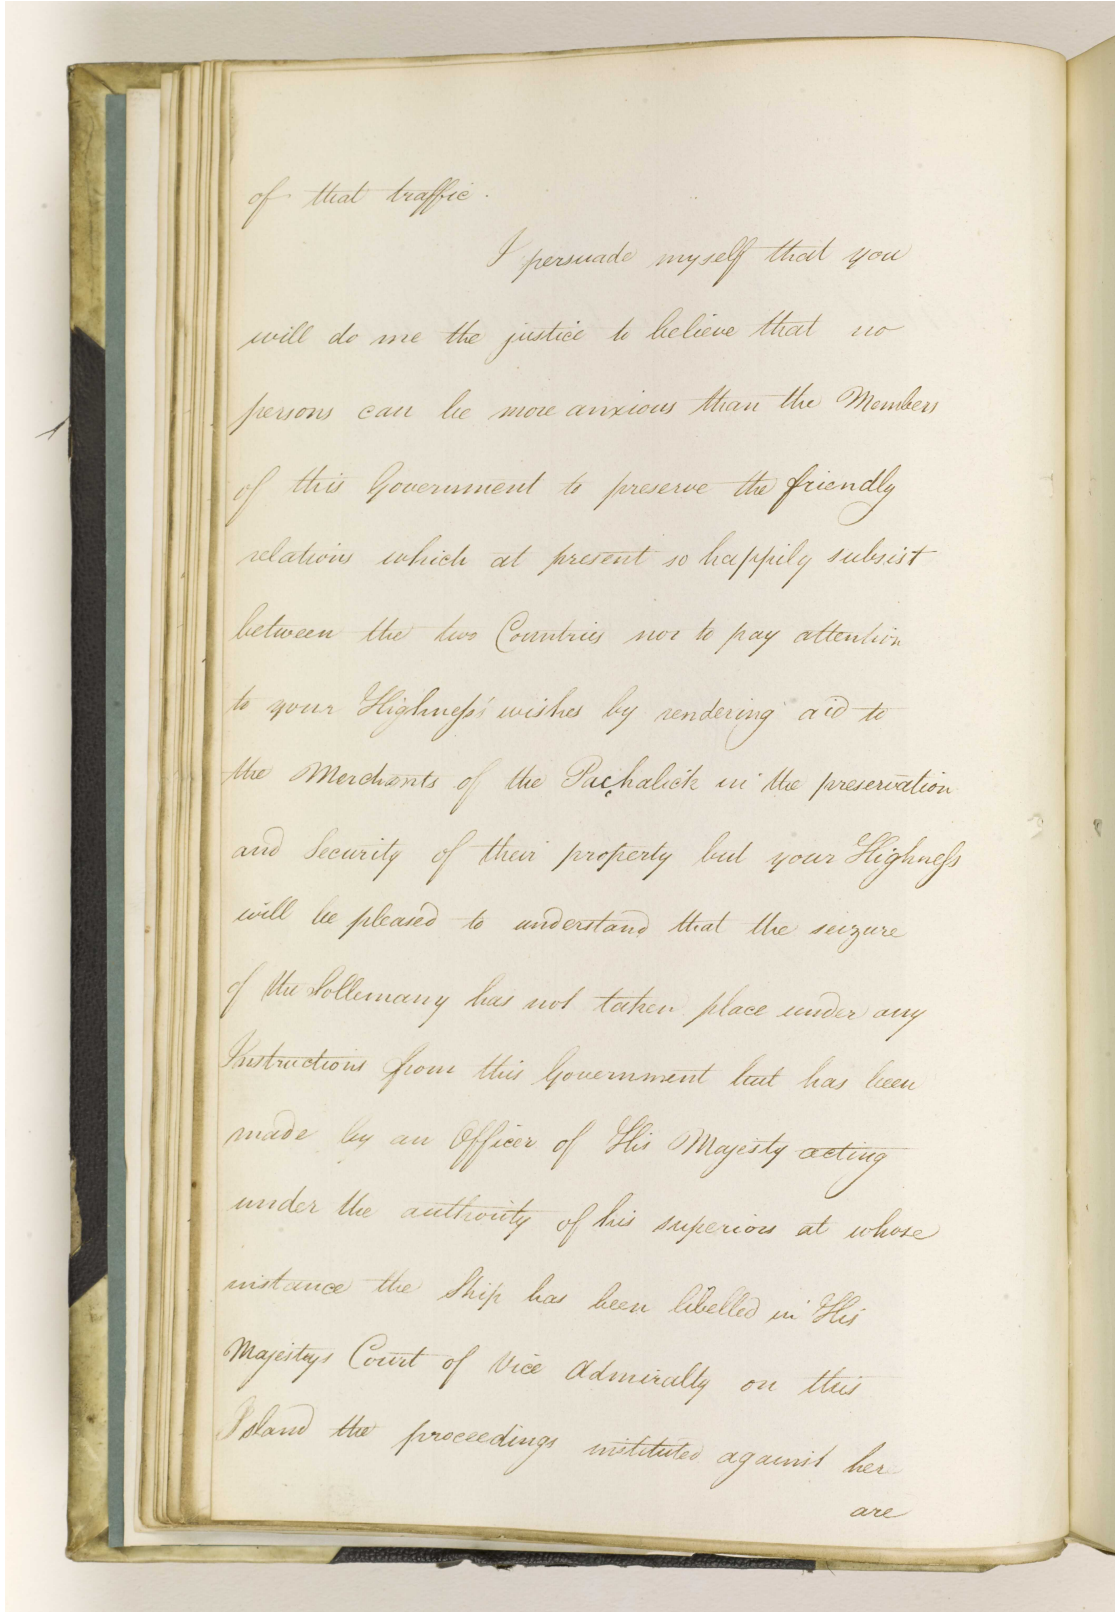 of that traffic.
I persuade myself that you
will do me the justice to believe that no
persons can be more anxious than the Members
of this Government to preserve the friendly
relations which at present so happily subsist
between the two Countries nor to pay attention
to your Highness's wishes by rendering aid to
the Merchants of the Pachalick in the preservation
and Security of their property but your Highness
will be pleased to understand that the seizure
of the Sollemany has not taken place under any
Instructions from this Government but has been
made by an Officer of His Majesty acting
under the authority of his superiors at whose
instance the Ship has been libelled in His
Majestys Court of Vice Admiralty on this
Island the proceedings instituted against her
are